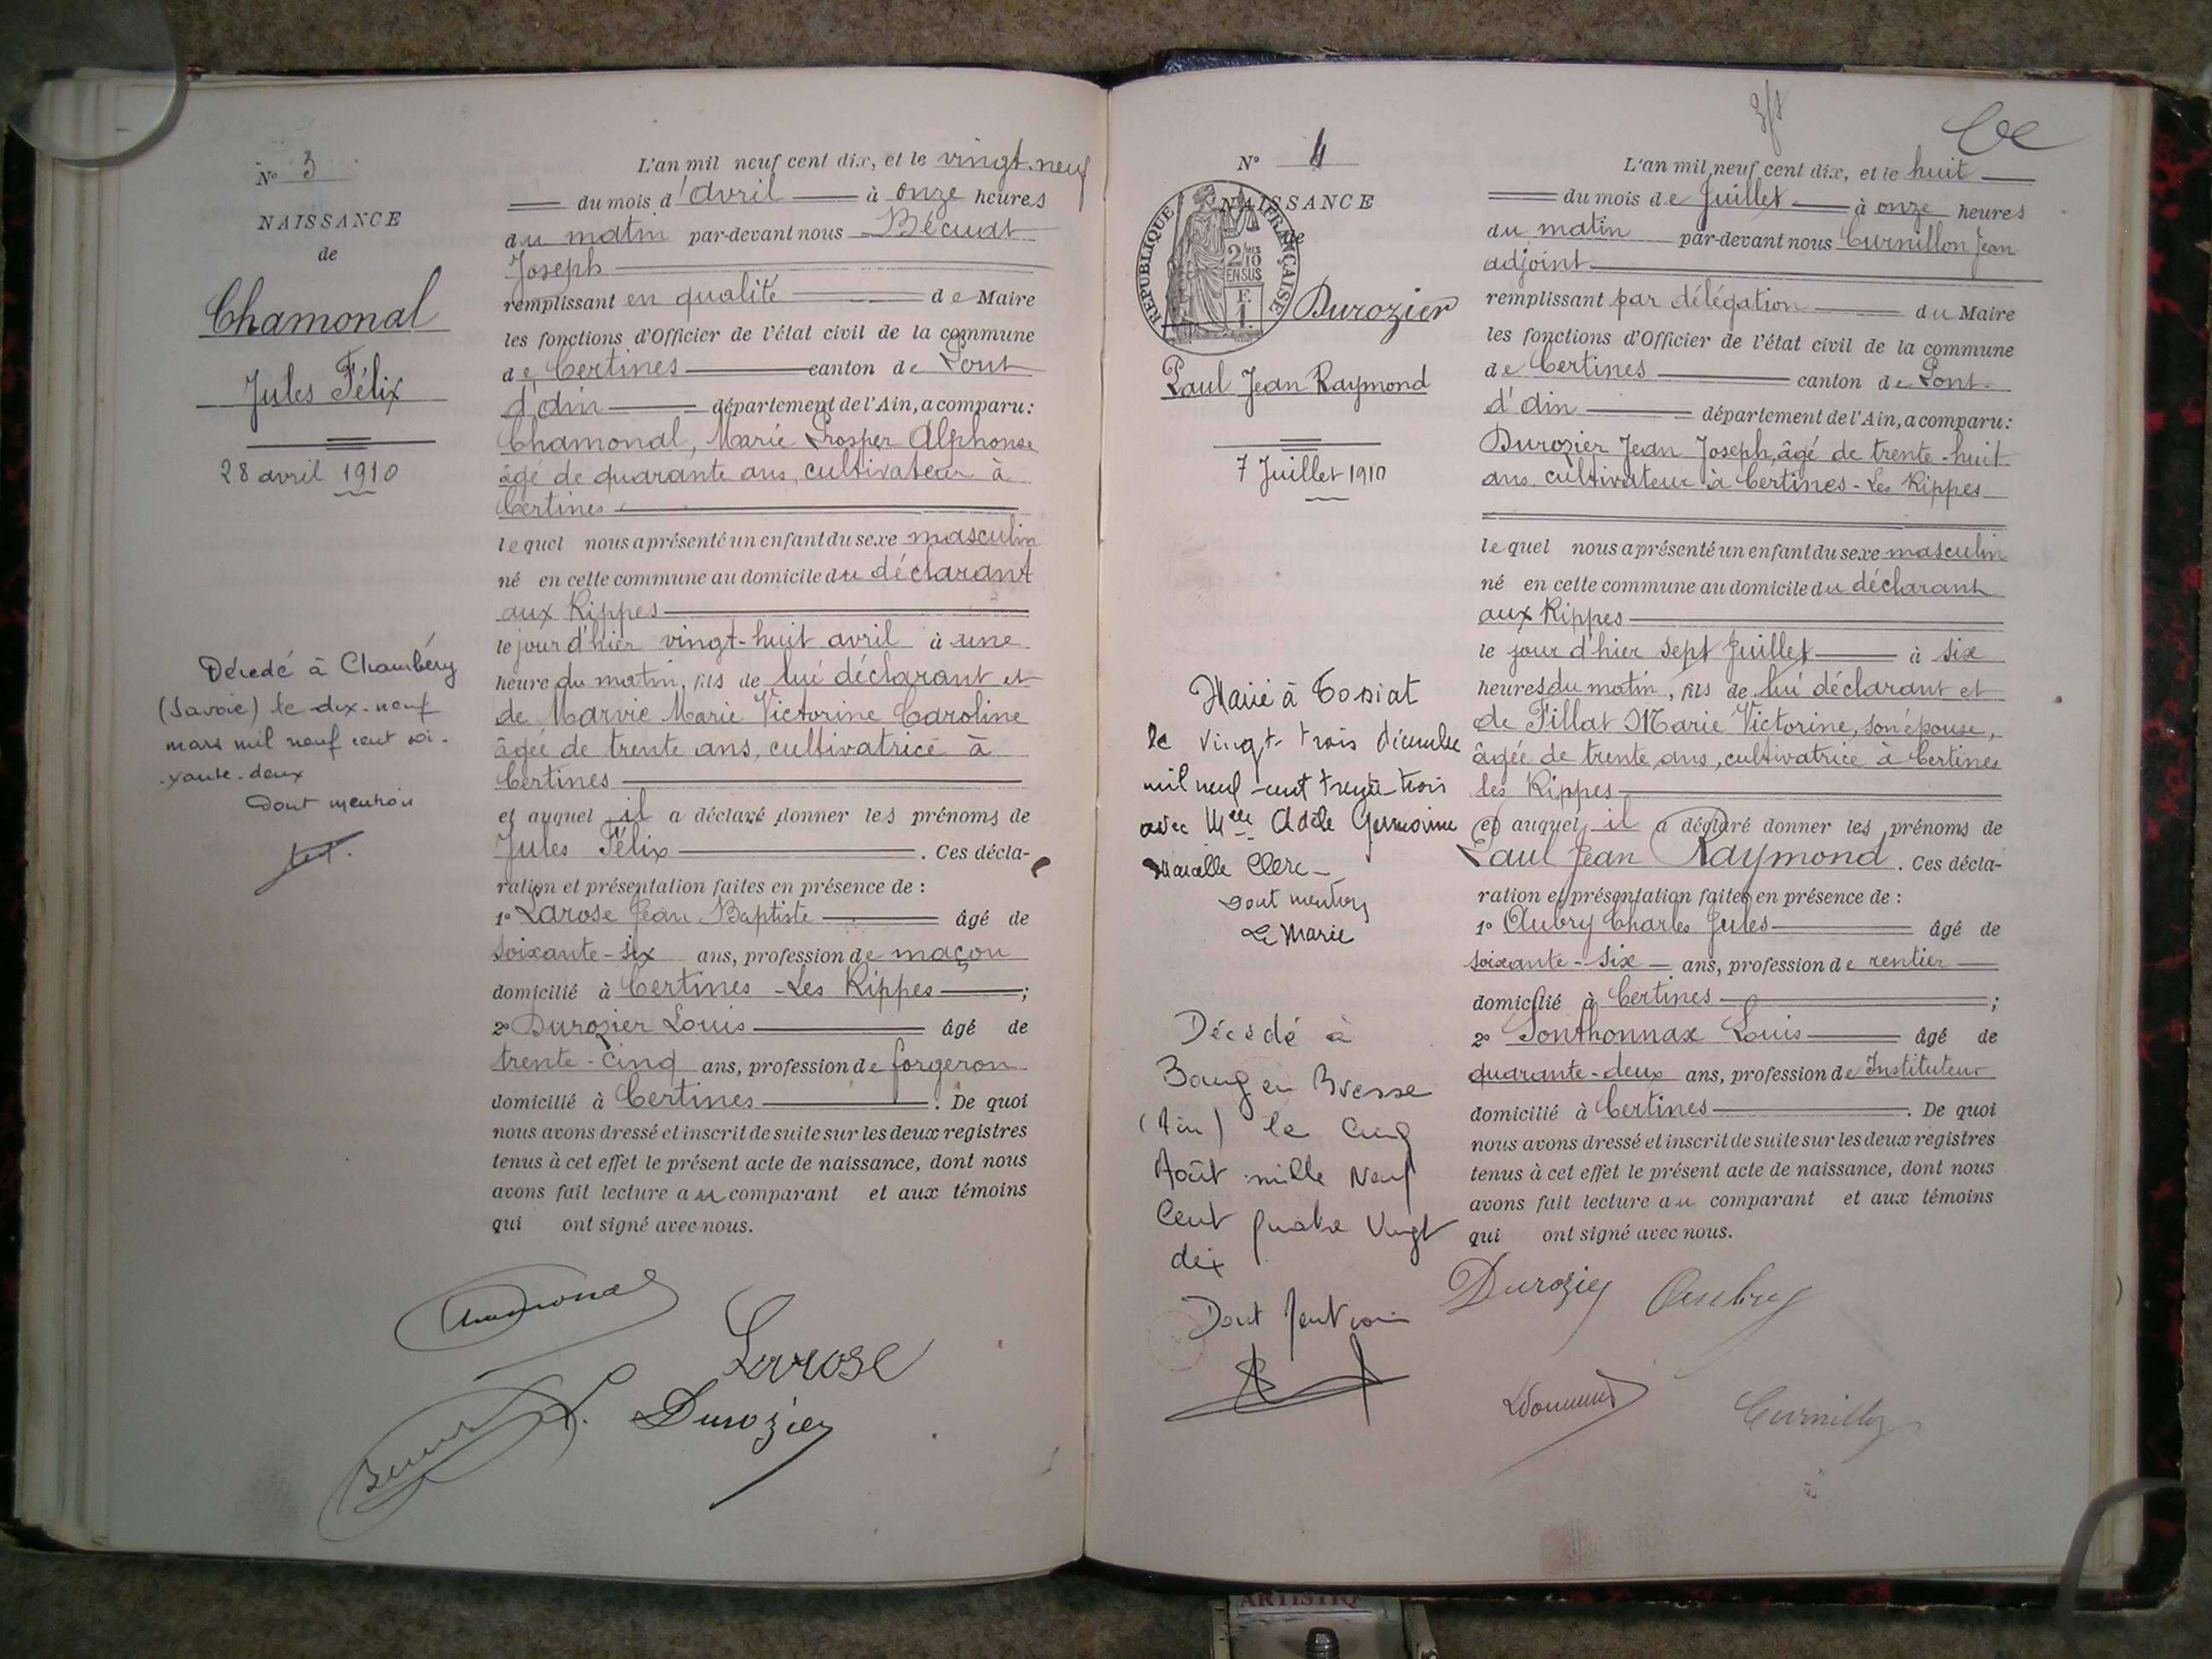 N° 3
NAISSANCE
de
Chamonal
Jules Félix
28 avril 1910
Décédé à Chambéry
(Savoie) le dix-neuf
mars mil neuf cent soi-
xante-deux
Dont mention
L'an mil neuf cent dix, et le vingt-neuf
du mois d'avril à onze heures
du matin par-devant nous Bécuat
Joseph
remplissant en qualité de Maire
les fonctions d'Officier de l'état civil de la commune
de Certines canton de Pont
d'ain département de l'Ain, a comparu :
Chamonal, Marie Prosper Alphonse
âgé de quarante ans, cultivateur à
Certines
lequel nous a présenté un enfant du sexe masculin
né en cette commune au domicile du déclarant
aux Rippes
le jour d'hier vingt-huit avril à une
heure du matin, fils de lui déclarant et
de Marvie Marie Victorine Caroline
âgée de trente ans, cultivatrice à
Certines
et auquel il a déclaré donner les prénoms de
Jules Félix . Ces décla-
ration et présentation faites en présence de :
1° Larose Jean Baptiste âgé de
soixante-six ans, profession de maçon
domicilié à Certines - Les Rippes ;
2° Durozier Louis âgé de
trente-cinq ans, profession de forgeron
domicilié à Certines . De quoi
nous avons dressé et inscrit de suite sur les deux registres
tenus à cet effet le présent acte de naissance, dont nous
avons fait lecture au comparant et aux témoins
qui ont signé avec nous.
Chamonal
Larose
L. Durozier
N° 4
NAISSANCE
de
REPUBLIQUE FRANÇAISE
2/10
EN SUS
F.
1.
Durozier
Paul Jean Raymond
7 Juillet 1910
Marié à Tossiat
le vingt-trois décembre
mil neuf cent trente-trois
avec Mlle Adèle Germaine
Marcelle Clerc
Dont mention
Le Maire
Décédé à
Bourg en Bresse
(Ain) le Cinq
Août mille Neuf
Cent quatre Vingt
dix
Dont Mention
L'an mil neuf cent dix, et le huit
du mois de Juillet à onze heures
du matin par-devant nous Curnillon Jean
adjoint
remplissant par délégation du Maire
les fonctions d'Officier de l'état civil de la commune
de Certines canton de Pont-
d'Ain département de l'Ain, a comparu :
Durozier Jean Joseph, âgé de trente-huit
ans, cultivateur à Certines - Les Rippes
lequel nous a présenté un enfant du sexe masculin
né en cette commune au domicile du déclarant
aux Rippes
le jour d'hier sept Juillet à six
heures du matin, fils de lui déclarant et
de Fillat Marie Victorine, son épouse,
âgée de trente ans, cultivatrice à Certines
les Rippes
et auquel il a déclaré donner les prénoms de
Paul Jean Raymond . Ces décla-
ration et présentation faites en présence de :
1° Aubry Charles Jules âgé de
soixante-six ans, profession de rentier
domicilié à Certines ;
2° Sonthonnax Louis âgé de
quarante-deux ans, profession de Instituteur
domicilié à Certines . De quoi
nous avons dressé et inscrit de suite sur les deux registres
tenus à cet effet le présent acte de naissance, dont nous
avons fait lecture au comparant et aux témoins
qui ont signé avec nous.
Durozier Aubry
Curnillon
ARTISTIQ